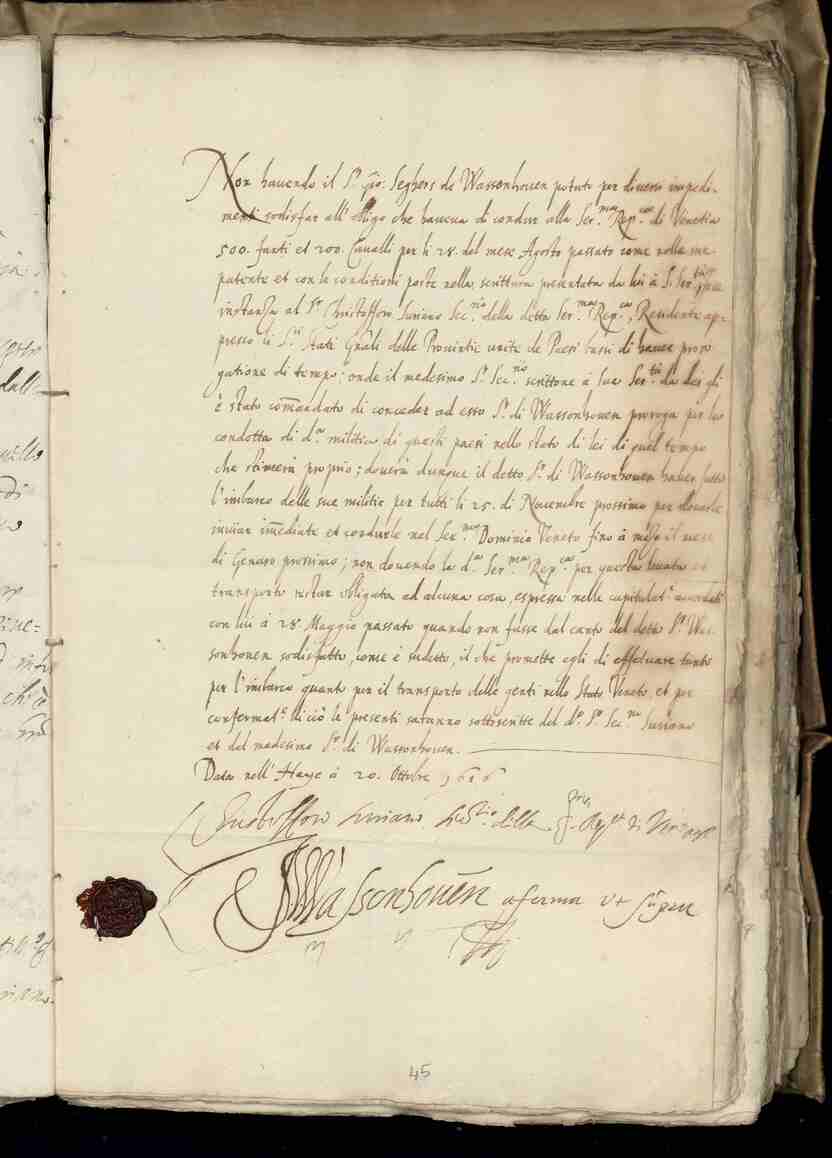 Non hauendo il S.r Gio: Seghers de Wassenhouen potuto per diuersi impedi-
menti sodisfar all' obligo che haueua di condur alla Ser.ma Rep.ca di Venetia
500. fanti et 200. Caualli per li 28. del mese Agosto passato come nella sua
patente et con le conditioni poste nella scrittura presentata da lui à S. Ser.tà, fece
instanza al S.r Christofforo Suriano Sec.rio della detta Ser.ma Rep.ca, Residente ap-
presso li S.ri Stati Gnãli delle Prouintie unite de Paesi bassi di hauer proro
gatione di tempo; onde il medesimo S.r Sec.rio scrittone à sua Ser.tà da lei gli
è stato com̃andato di conceder ad esso S.r di Wassenhouen proroga per la
condotta di d.a militia di questi paesi nello stato di lei di quel tempo
che stimerà proprio; douerà dunque il detto S.r di Wassonhouen hauer fatto
l'imbarco delle sue militie per tutti li 25. di Nouembre prossimo per douerle
inuiar im̃ediate et condurle nel Ser.mo Dominio Veneto fino à mezo il mese
di Genaro prossimo; non douendo la d.a Ser.ma Rep.ca per questa leuata et
transporto restar obligata ad alcuna cosa espressa nelle capitulat.i accordati
con lui à 28 Maggio passato quando non fusse dal canto del detto S.r Was-
sonhouen sodisfatto, come è sudetto, il che promette egli di effettuare tanto
per l'imbarco quanto per il transporto delle genti nello Stato Veneto, et per
confermat.e di ciò le presenti saranno sottoscritte del d.o S.r Sec.rio Suriano
et del medesimo S.r di Wassonhouen.
Data nell' Haye à 20. Ottobre 1616
Christofforo Suriano Sec.rio della Ser.ma Rep.ca di Venetia
Wassonhouen aferma ut supra
45